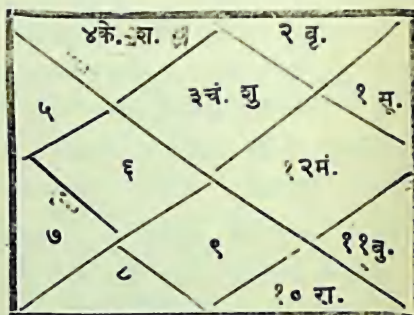 ४के. श. २ वृ.
३चं. शु
५ १ सू.
६ १२मं.
७ ९ ११बु.
८ १० रा.